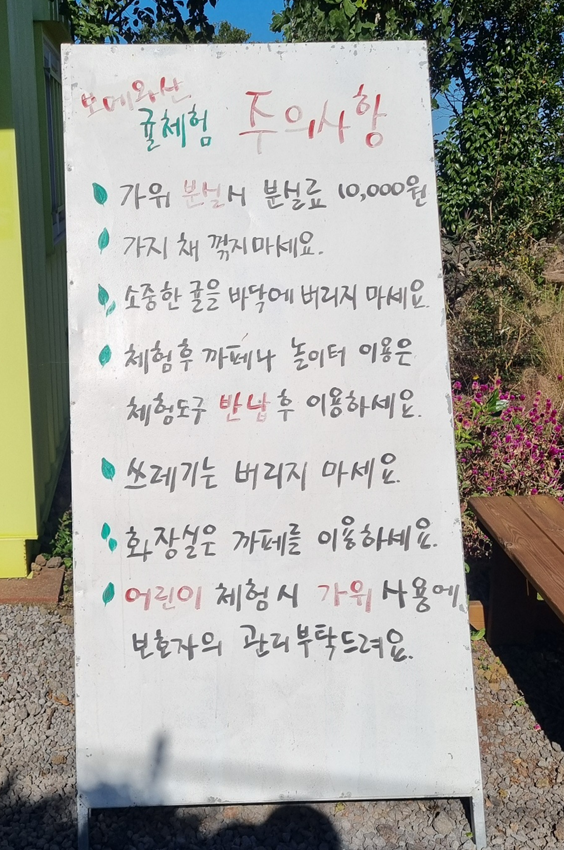 보메와산
귤체험 주의사항
가위 분실시 분실료 10,000원
가지 채 꺾지마세요.
소중한 귤을 바닥에 버리지 마세요.
체험후 까페나 놀이터 이용은
체험도구 반납후 이용하세요.
쓰레기는 버리지 마세요.
화장실은 까페를 이용하세요.
어린이 체험시 가위 사용에
보호자의 관리부탁드려요.